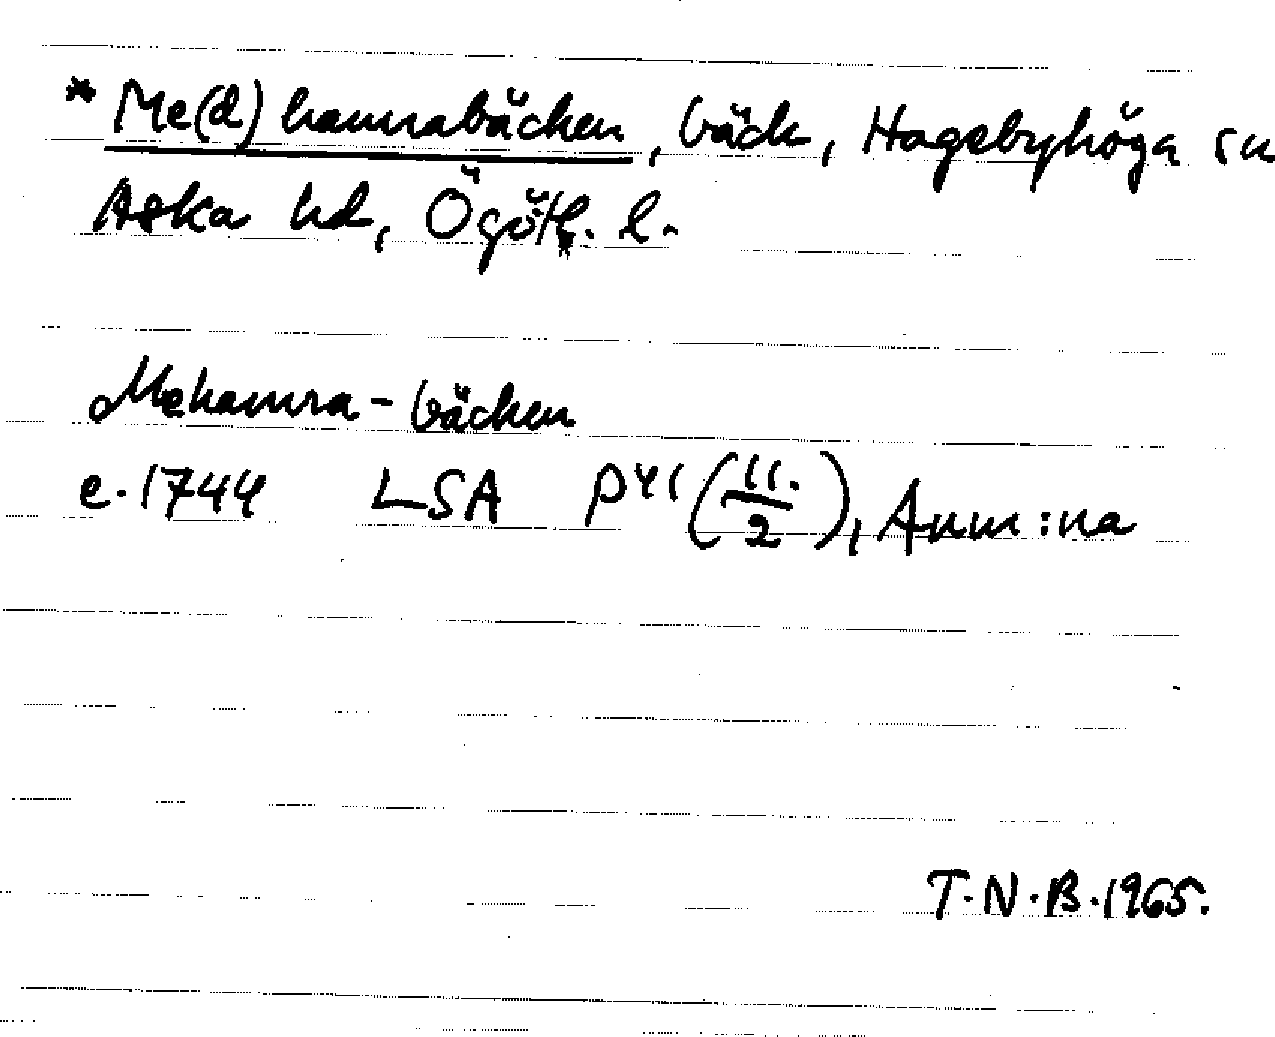 * Me(d)hamrabäcken, bäck, Hagebyhöga sn
Aska hd, Ögötl. l.
Mehamra-bäcken
e. 1744 LSA P41 (11./2), Anm:na
T.N.B. 1965.